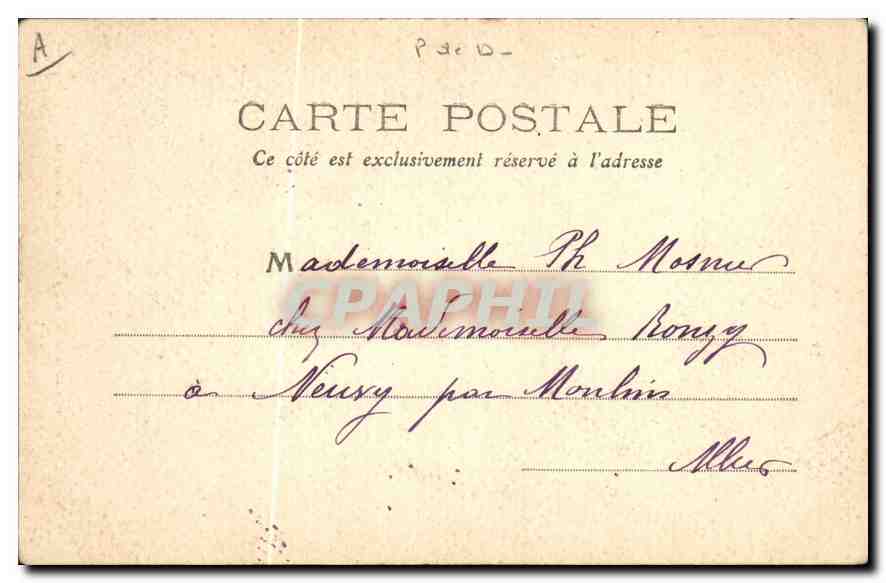 A
P de D -
CARTE POSTALE
Ce côté est exclusivement réservé à l'adresse
Mademoiselle Ph Mosnier
CPAPHIL
chez Mademoiselle Rongy
à Neuvy par Moulins
Allier